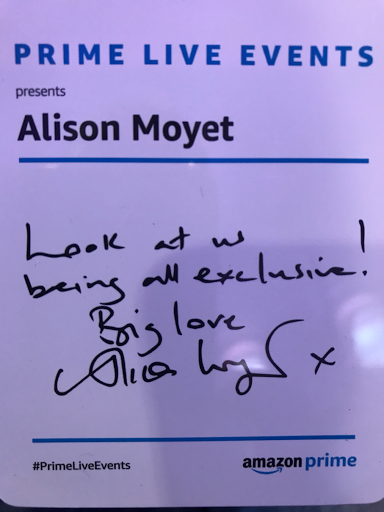 PRIME LIVE EVENTS
presents
Alison Moyet
Look at us
being all exclusive!
Big love
Alison Moyet x
#PrimeLiveEvents
amazon prime